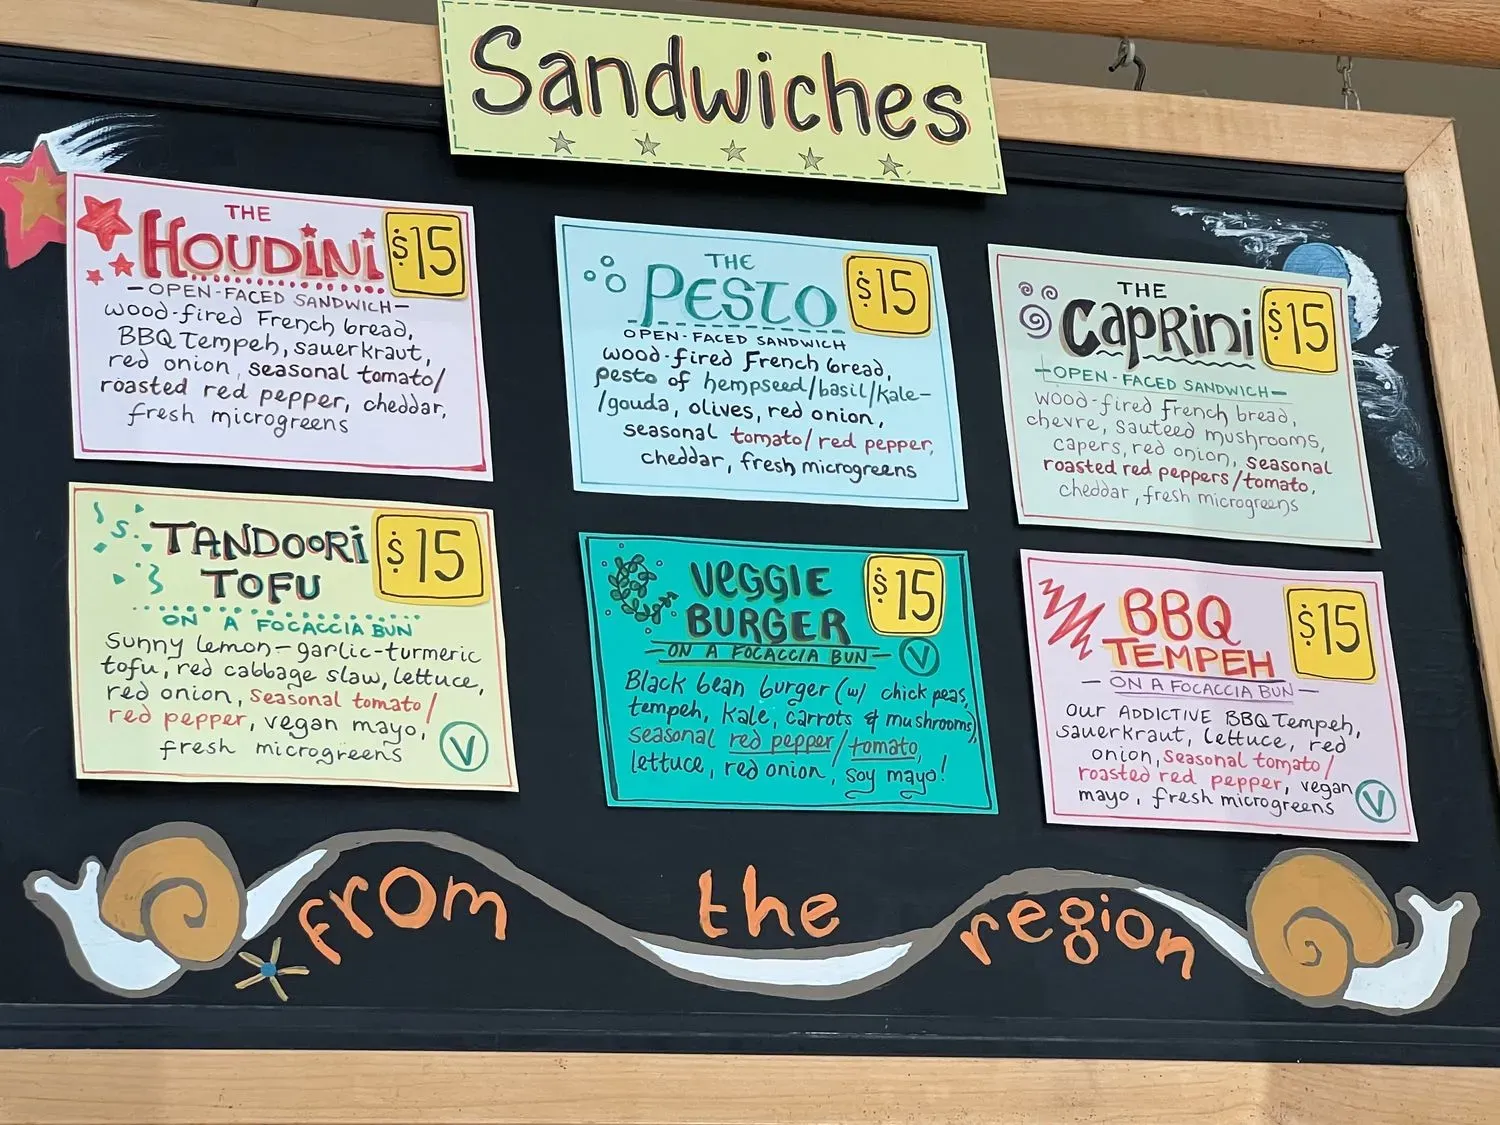 Sandwiches
THE
HOUDINI
$15
-OPEN-FACED SANDWICH-
wood-fired French bread,
BBQ Tempeh, sauerkraut,
red onion, seasonal tomato/
roasted red pepper, cheddar,
fresh microgreens
THE
PESTO
$15
OPEN-FACED SANDWICH
wood-fired French bread,
pesto of hempseed/basil/kale-
/gouda, olives, red onion,
seasonal tomato/red pepper,
cheddar, fresh microgreens
THE
CAPRINI
$15
-OPEN-FACED SANDWICH-
wood-fired French bread,
chevre, sautéed mushrooms,
capers, red onion, seasonal
roasted red peppers/tomato,
cheddar, fresh microgreens
TANDOORI
TOFU
$15
ON A FOCACCIA BUN
Sunny lemon-garlic-turmeric
tofu, red cabbage slaw, lettuce,
red onion, seasonal tomato/
red pepper, vegan mayo,
fresh microgreens
V
VEGGIE
BURGER
$15
-ON A FOCACCIA BUN-
V
Black bean burger (w/ chick peas,
tempeh, kale, carrots & mushrooms),
seasonal red pepper/tomato,
lettuce, red onion, soy mayo!
BBQ
TEMPEH
$15
-ON A FOCACCIA BUN-
our ADDICTIVE BBQ Tempeh,
sauerkraut, lettuce, red
onion, seasonal tomato/
roasted red pepper, vegan
mayo, fresh microgreens
V
from the region